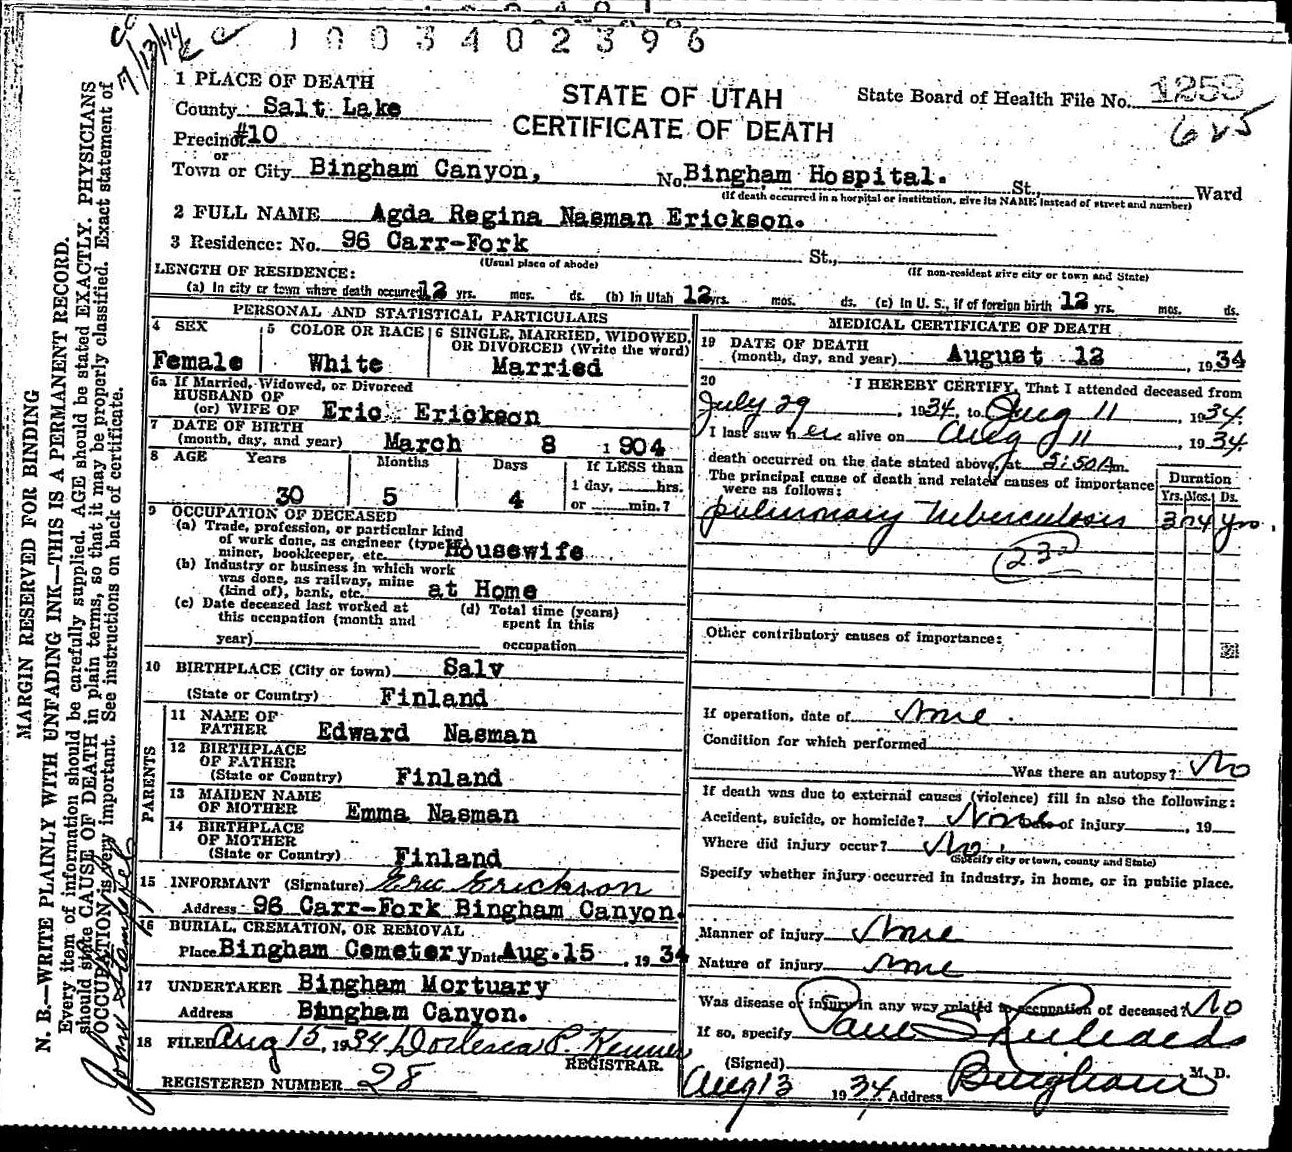 1003402396
1 PLACE OF DEATH
STATE OF UTAH
CERTIFICATE OF DEATH
State Board of Health File No. 1259
625
County Salt Lake
Precinct #10
or
Town or City Bingham Canyon, No Bingham Hospital. St., Ward
(If death occurred in a hospital or institution, give its NAME instead of street and number)
2 FULL NAME Agda Regina Nasman Erickson.
3 Residence: No. 96 Carr-Fork St.,
(Usual place of abode) (If non-resident give city or town and State)
LENGTH OF RESIDENCE:
(a) In city or town where death occurred 12 yrs. mos. ds. (b) In Utah 12 yrs. mos. ds. (c) In U. S., if of foreign birth 12 yrs. mos. ds.
PERSONAL AND STATISTICAL PARTICULARS
4 SEX 5 COLOR OR RACE 6 SINGLE, MARRIED, WIDOWED, OR DIVORCED (Write the word)
Female White Married
6a If Married, Widowed, or Divorced
HUSBAND OF
(or) WIFE OF Eric Erickson
7 DATE OF BIRTH
(month, day, and year) March 8 1904
8 AGE Years Months Days If LESS than
1 day, hrs.
30 5 4 or min.?
9 OCCUPATION OF DECEASED
(a) Trade, profession, or particular kind
of work done, as engineer (type of
miner, bookkeeper, etc. Housewife
(b) Industry or business in which work
was done, as railway, mine
(kind of), bank, etc. at Home
(c) Date deceased last worked at
this occupation (month and
year)
(d) Total time (years)
spent in this
occupation
10 BIRTHPLACE (City or town) Salv
(State or Country) Finland
PARENTS
11 NAME OF
FATHER Edward Nasman
12 BIRTHPLACE
OF FATHER
(State or Country) Finland
13 MAIDEN NAME
OF MOTHER Emma Nasman
14 BIRTHPLACE
OF MOTHER
(State or Country) Finland
15 INFORMANT (Signature) Eric Erickson
Address 96 Carr-Fork Bingham Canyon.
16 BURIAL, CREMATION, OR REMOVAL
Place Bingham Cemetery Date Aug. 15, 1934
17 UNDERTAKER Bingham Mortuary
Address Bingham Canyon.
18 FILED Aug 15, 1934
REGISTRAR.
REGISTERED NUMBER 28
MEDICAL CERTIFICATE OF DEATH
19 DATE OF DEATH
(month, day, and year) August 12, 1934
20 I HEREBY CERTIFY, That I attended deceased from
July 29, 1934, to Aug 11, 1934.
I last saw her alive on Aug 11, 1934.
death occurred on the date stated above, at 5:50 A m.
The principal cause of death and related causes of importance
were as follows:
Duration
Yrs. Mos. Ds.
pulmonary Tuberculosis 3 or 4 yrs.
23
Other contributory causes of importance:
If operation, date of None.
Condition for which performed
Was there an autopsy? No
If death was due to external causes (violence) fill in also the following:
Accident, suicide, or homicide? None Date of injury, 19
Where did injury occur? No.
(Specify city or town, county and State)
Specify whether injury occurred in industry, in home, or in public place.
Manner of injury None
Nature of injury None
Was disease or injury in any way related to occupation of deceased? No
If so, specify
(Signed) Paul S Richards M. D.
Aug 13 1934 Address Bingham
MARGIN RESERVED FOR BINDING
N. B.—WRITE PLAINLY WITH UNFADING INK—THIS IS A PERMANENT RECORD.
Every item of information should be carefully supplied. AGE should be stated EXACTLY. PHYSICIANS
should state CAUSE OF DEATH in plain terms, so that it may be properly classified. Exact statement of
OCCUPATION is very important. See instructions on back of certificate.